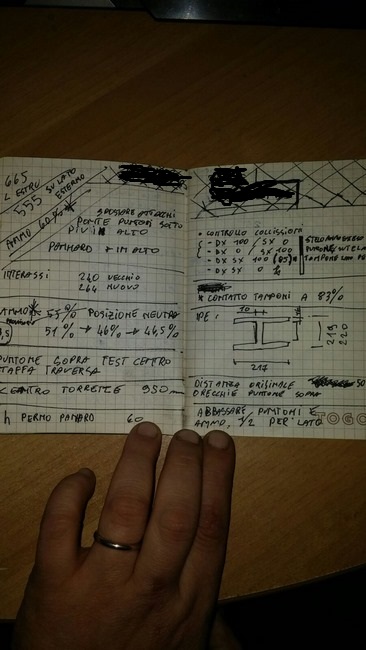 665
L ESTRU
555 SU LATO
ESTERNO
AMMO 60%
SPOSTARE ATTACCHI
PONTE PUNTONI SOTTO
PIU' ALTO
PANHARD + IN ALTO
INTERASSI 240 VECCHIO
264 NUOVO
55% POSIZIONE NEUTRA
51% → 46% → 44,5%
PUNTONE SOPRA TEST CENTRO
STAFFA TRAVERSA
CENTRO TORRETTE 950
h PERNO PANARD 60
• CONTROLLO COLLISIONI
- DX 100 / SX 0
- DX 0 / SX 100
- DX SX 100 (85)
- DX SX 0
STERZANDO E SCO
PUNTONE SU TELA
TAMPONE CON PE
* CONTATTO TAMPONI A 83%
IPE: 10
217
219
220
DISTANZA ORIGINALE 50
ORECCHIE PUNTONE SOPRA
ABBASSARE PUNTONI E
AMMO, 1/2 PER LATO
TOGO